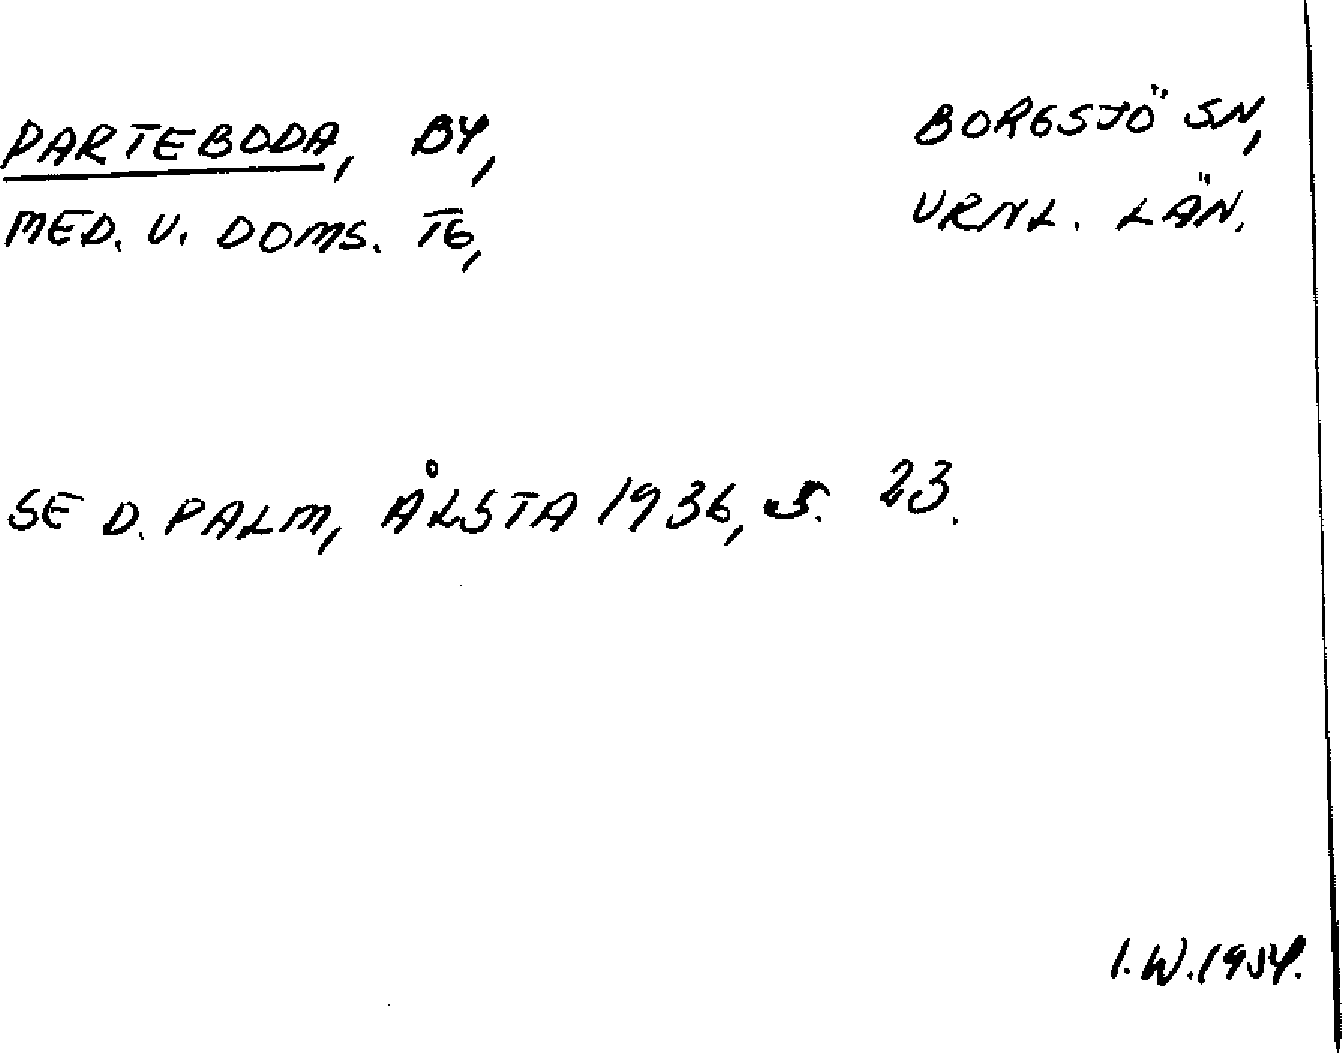 PARTEBODA, BY,
MED. U. DOMS. TG,
BORGSJÖ SN,
VRNL. LÄN.
SE D. PALM, ÅLSTA 1936, S. 23.
I.W.1954.